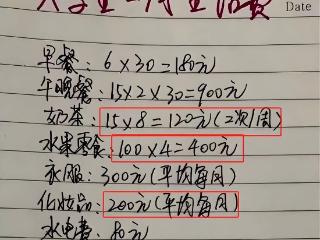 大学生一月生活费
Date
早餐：6×30=180元
午晚餐：15×2×30=900元
奶茶：15×8=120元(2次/周)
水果零食：100×4=400元
衣服：300元(平均每月)
化妆品：200元(平均每月)
水电费：80元